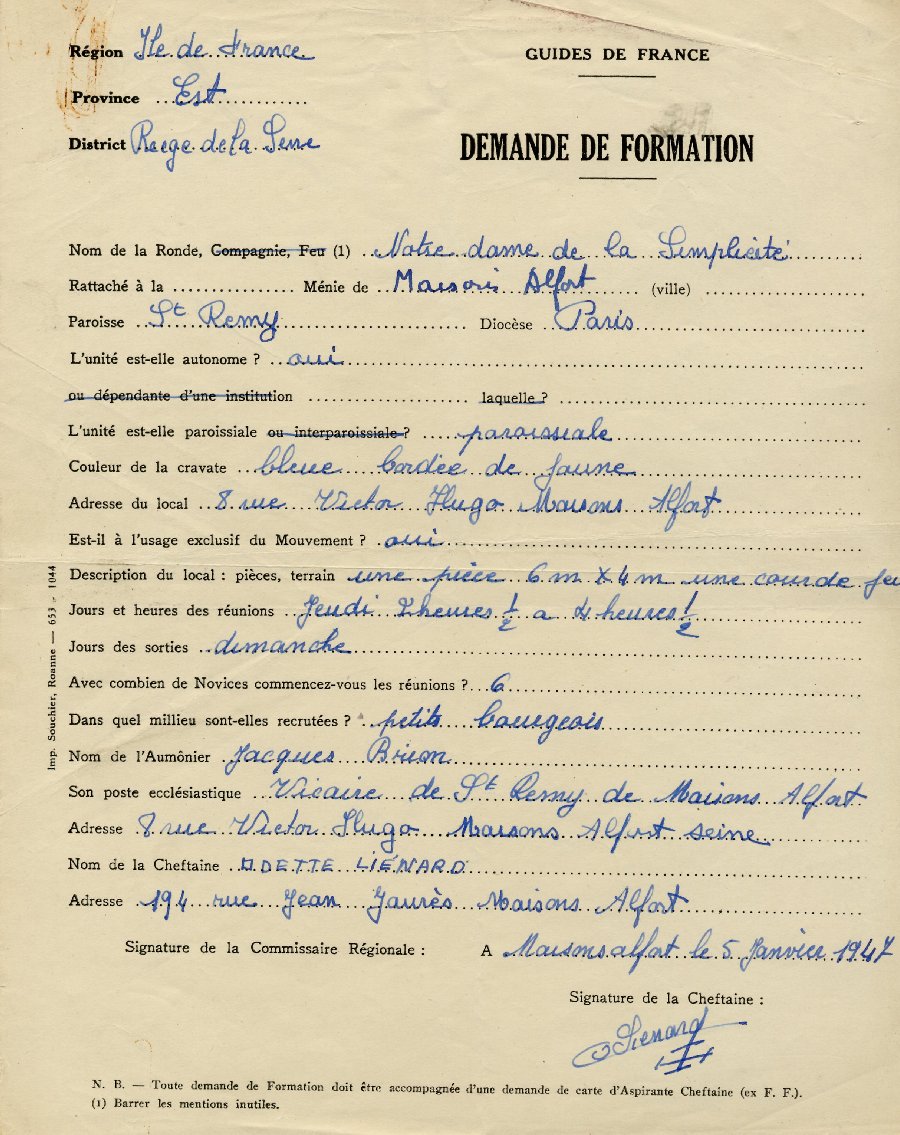 Région Ile de France
GUIDES DE FRANCE
Province Est
District de la
DEMANDE DE FORMATION
Nom de la Ronde, Compagnie, Feu (1) Notre dame de la Simplicité
Rattaché à la ............... Ménie de Maisons Alfort (ville)
Paroisse St Remy Diocèse Paris
L'unité est-elle autonome ? oui
ou dépendante d'une institution ............... laquelle ?
L'unité est-elle paroissiale ou interparoissiale ? paroissiale
Couleur de la cravate bleue bordée de jaune
Adresse du local 8 rue Victor Hugo Maisons Alfort
Est-il à l'usage exclusif du Mouvement ? oui
Description du local : pièces, terrain une pièce 6m X 4m une cour de jeu
Jours et heures des réunions Jeudi 2 heures 1/2 a 4 heures 1/2
Jours des sorties dimanche
Avec combien de Novices commencez-vous les réunions ? 6
Dans quel millieu sont-elles recrutées ? petits bourgeois
Nom de l'Aumônier Jacques
Son poste ecclésiastique Vicaire de St Remy de Maisons Alfort
Adresse 8 rue Victor Hugo Maisons Alfort seine
Nom de la Cheftaine ODETTE LIÉNARD
Adresse 194 rue Jean Jaurès Maisons Alfort
Signature de la Commissaire Régionale : A Maisons alfort le 5 Janvier 1947
Signature de la Cheftaine :
OLienard
N. B. — Toute demande de Formation doit être accompagnée d'une demande de carte d'Aspirante Cheftaine (ex F. F.).
(1) Barrer les mentions inutiles.
Imp. Souchier, Roanne — 633 - 1044